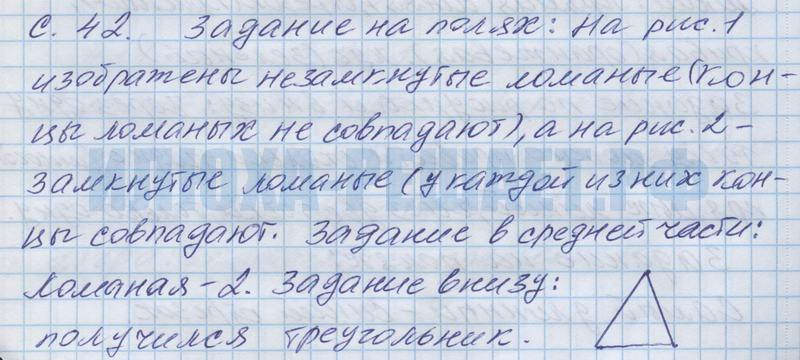 с. 42. Задание на полях: На рис. 1
изображены незамкнутые ломаные (кон-
цы ломаных не совпадают), а на рис. 2 -
замкнутые ломаные (у каждой из них кон-
цы совпадают. Задание в средней части:
ломаная - 2. Задание внизу:
получился треугольник.
ИЛЮХА-РЕШАЕТ.РФ